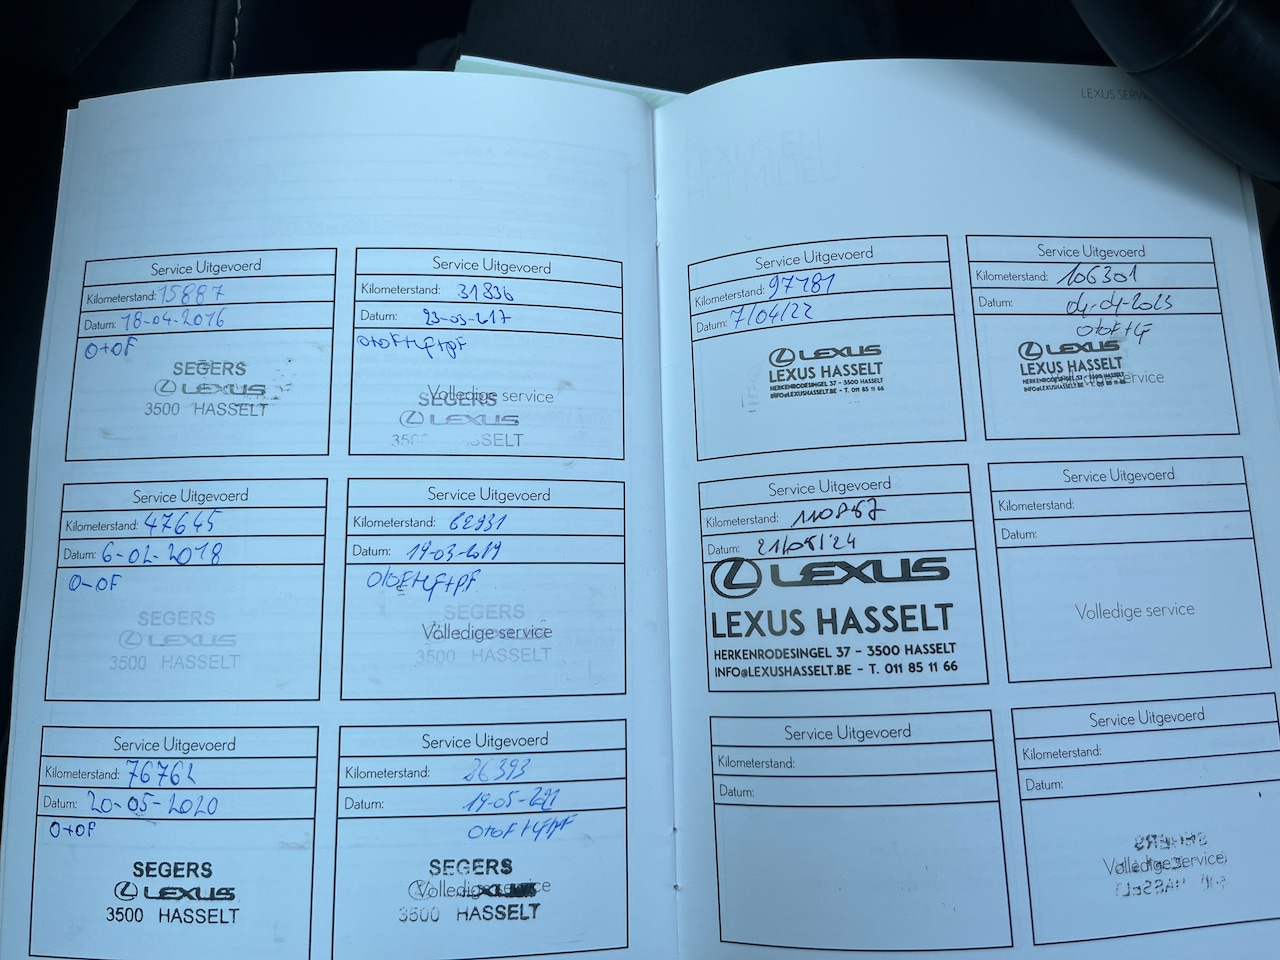 LEXUS SERVIC
LEXUS EN
HET MILIEU
Service Uitgevoerd
Kilometerstand: 15887
Datum: 18-04-2016
O+OF
SEGERS
LEXUS
3500 HASSELT
Service Uitgevoerd
Kilometerstand: 31836
Datum: 23-03-2017
O+OF+LF+PF
Volledige service
SEGERS
LEXUS
3500 HASSELT
Service Uitgevoerd
Kilometerstand: 47645
Datum: 6-02-2018
O-OF
SEGERS
LEXUS
3500 HASSELT
Service Uitgevoerd
Kilometerstand: 62931
Datum: 19-03-2019
O+OF+LF+PF
SEGERS
Volledige service
3500 HASSELT
Service Uitgevoerd
Kilometerstand: 76762
Datum: 20-05-2020
O+OF
SEGERS
LEXUS
3500 HASSELT
Service Uitgevoerd
Kilometerstand: 86393
Datum: 19-05-2021
O+OF+LF+PF
SEGERS
Volledige service
LEXUS
3500 HASSELT
Service Uitgevoerd
Kilometerstand: 97181
Datum: 7/04/22
LEXUS
LEXUS HASSELT
HERKENRODESINGEL 37 - 3500 HASSELT
INFO@LEXUSHASSELT.BE - T. 011 85 11 66
Service Uitgevoerd
Kilometerstand: 106301
Datum: 04-04-2023
O+OF+LF
LEXUS
LEXUS HASSELT
HERKENRODESINGEL 37 - 3500 HASSELT
Volledige service
INFO@LEXUSHASSELT.BE - T. 011 85 11 66
Service Uitgevoerd
Kilometerstand: 110867
Datum: 21/05/24
LEXUS
LEXUS HASSELT
HERKENRODESINGEL 37 - 3500 HASSELT
INFO@LEXUSHASSELT.BE - T. 011 85 11 66
Service Uitgevoerd
Kilometerstand:
Datum:
Volledige service
Service Uitgevoerd
Kilometerstand:
Datum:
Service Uitgevoerd
Kilometerstand:
Datum:
SEGERS
Volledige service
HASSELT